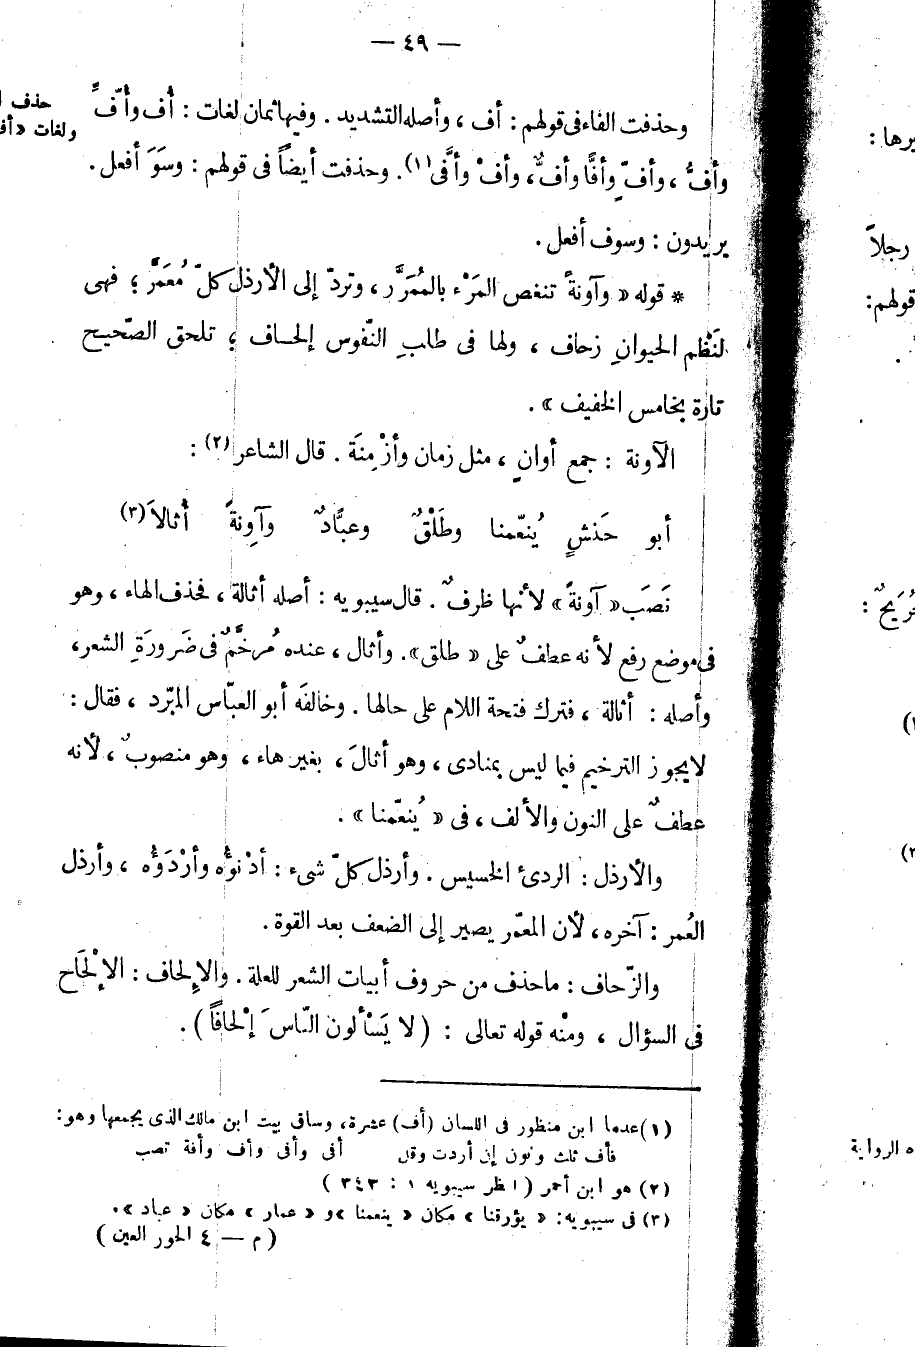 — ٤٩ —
وحذفت الفاء فى قولهم : أف ، وأصله التشديد . وفيها ثمان لغات : أُف وأفّ
حذف
ولغات «أف
وأفُّ ، وأفّ وأفًّا وأفٌّ، وأفْ وأفَّى (١) . وحذفت أيضاً فى قولهم : وسَوَ أفعل .
يريدون : وسوف أفعل .
* قوله « وآونةً تنغص المَرْء بالمُمَرَّر ، وتردّ إلى الأرذل كلّ مُعَمَّر ؛ فهى
لنَظْم الحيوانِ زحاف ، ولها فى طلبِ النّفوس إلحـاف ؛ تلحق الصّحيح
تارة بخامس الخفيف » .
الآونة : جمع أوانٍ ، مثل زمان وأزْمِنَة . قال الشاعر (٢) :
أبو حَنَشٍ يُنعّمنا وطَلْقٌ وعبَّادٌ وآوِنةً أُثالاَ (٣)
نَصَب « آونةً » لأنها ظرفٌ . قال سيبويه : أصله أثالة ، فحذف الهاء ، وهو
فى موضع رفع لأنه عطفٌ على « طلق ». وأثال ، عنده مُرخَّمٌ فى ضَرورَةِ الشعر،
وأصله : أثالة ، فترك فتحة اللام على حالها . وخالفَه أبو العبّاس المبّرد ، فقال :
لايجوز الترخيم فيما ليس بمنادى ، وهو أثالَ ، بغير هاء ، وهو منصوبٌ ، لأنه
عطفٌ على النون والألف ، فى « يُنعّمنا » .
والأرذل : الردئ الخسيس . وأرذل كلّ شىء : أدْنوُّه وأرْدَوُّه ، وأرذل
العُمر : آخره، لأن المعمّر يصير إلى الضعف بعد القوة .
والزّحاف : ماحذف من حروف أبيات الشعر للعلة . والإلحاف : الإلْحَاح
فى السؤال ، ومنْه قوله تعالى : ( لا يَسْألون النّاسَ إلْحافاً ) .
(١) عدها ابن منظور فى اللسان (أف) عشرة، وساق بيت ابن مالك الذى يجمعها وهو :
فأف ثلث ونون إن أردت وقل أفى وأفى وأف وأفة تصب
(٢) هو ابن أحمر ( انظر سيبويه ١ : ٣٤٣ )
(٣) فى سيبويه : « يؤرقنا » مكان « ينعمنا » و « عمار » مكان « عباد » .
( م — ٤ الحور العين )
يرها :
رجلاً
قولهم :
ه الرواية